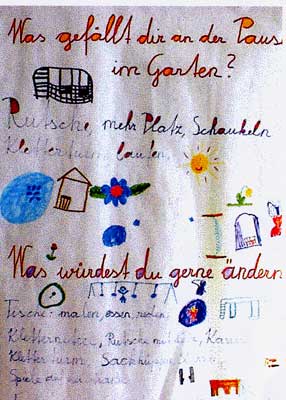 Was gefällt dir an der Paus
im Garten?
Rutsche, mehr Platz, Schaukeln
Kletterturm, laufen,
Was würdest du gerne ändern
Tische: malen, essen, reden,
Rutsche mit
Kletterturm,
Spiele